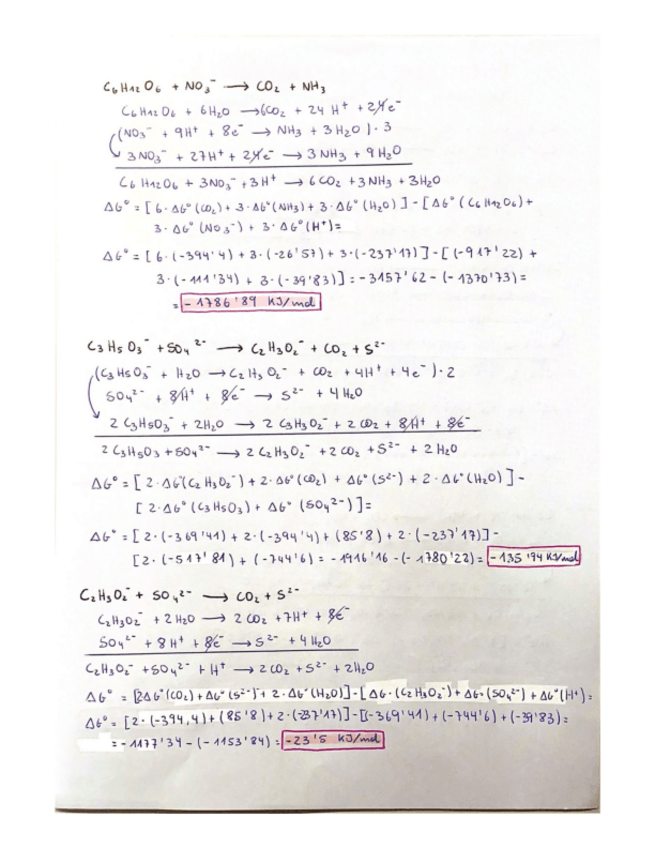 C6H12O6 + NO3⁻ → CO2 + NH3
C6H12O6 + 6H2O → 6CO2 + 24 H⁺ + 24e⁻
(NO3⁻ + 9H⁺ + 8e⁻ → NH3 + 3H2O) · 3
3NO3⁻ + 27H⁺ + 24e⁻ → 3NH3 + 9H2O
C6H12O6 + 3NO3⁻ + 3H⁺ → 6CO2 + 3NH3 + 3H2O
ΔG° = [6 · ΔG°(CO2) + 3 · ΔG°(NH3) + 3 · ΔG°(H2O)] - [ΔG°(C6H12O6) +
3 · ΔG°(NO3⁻) + 3 · ΔG°(H⁺) =
ΔG° = [6 · (-394'4) + 3 · (-26'57) + 3 · (-237'17)] - [(-917'22) +
3 · (-111'34) + 3 · (-39'83)] = -3157'62 - (-1370'73) =
= -1786'89 KJ/mol
C3H5O3⁻ + SO4²⁻ → C2H3O2⁻ + CO2 + S²⁻
(C3H5O3⁻ + H2O → C2H3O2⁻ + CO2 + 4H⁺ + 4e⁻) · 2
SO4²⁻ + 8H⁺ + 8e⁻ → S²⁻ + 4H2O
2 C3H5O3⁻ + 2H2O → 2 C2H3O2⁻ + 2CO2 + 8H⁺ + 8e⁻
2 C3H5O3 + SO4²⁻ → 2 C2H3O2⁻ + 2CO2 + S²⁻ + 2H2O
ΔG° = [2 · ΔG°(C2H3O2⁻) + 2 · ΔG°(CO2) + ΔG°(S²⁻) + 2 · ΔG°(H2O)] -
[2 · ΔG°(C3H5O3) + ΔG°(SO4²⁻)] =
ΔG° = [2 · (-369'41) + 2 · (-394'4) + (85'8) + 2 · (-237'17)] -
[2 · (-517'81) + (-744'6) = -1916'16 - (-1780'22) = -135'94 KJ/mol
C2H3O2⁻ + SO4²⁻ → CO2 + S²⁻
C2H3O2⁻ + 2H2O → 2CO2 + 7H⁺ + 8e⁻
SO4²⁻ + 8H⁺ + 8e⁻ → S²⁻ + 4H2O
C2H3O2⁻ + SO4²⁻ + H⁺ → 2CO2 + S²⁻ + 2H2O
ΔG° = [2ΔG°(CO2) + ΔG°(S²⁻) + 2 · ΔG°(H2O)] - [ΔG°(C2H3O2⁻) + ΔG°(SO4²⁻) + ΔG°(H⁺) =
ΔG° = [2 · (-394,4) + (85'8) + 2 · (-237'17)] - [(-369'41) + (-744'6) + (-39'83) =
= -1177'34 - (-1153'84) = -23'5 KJ/mol